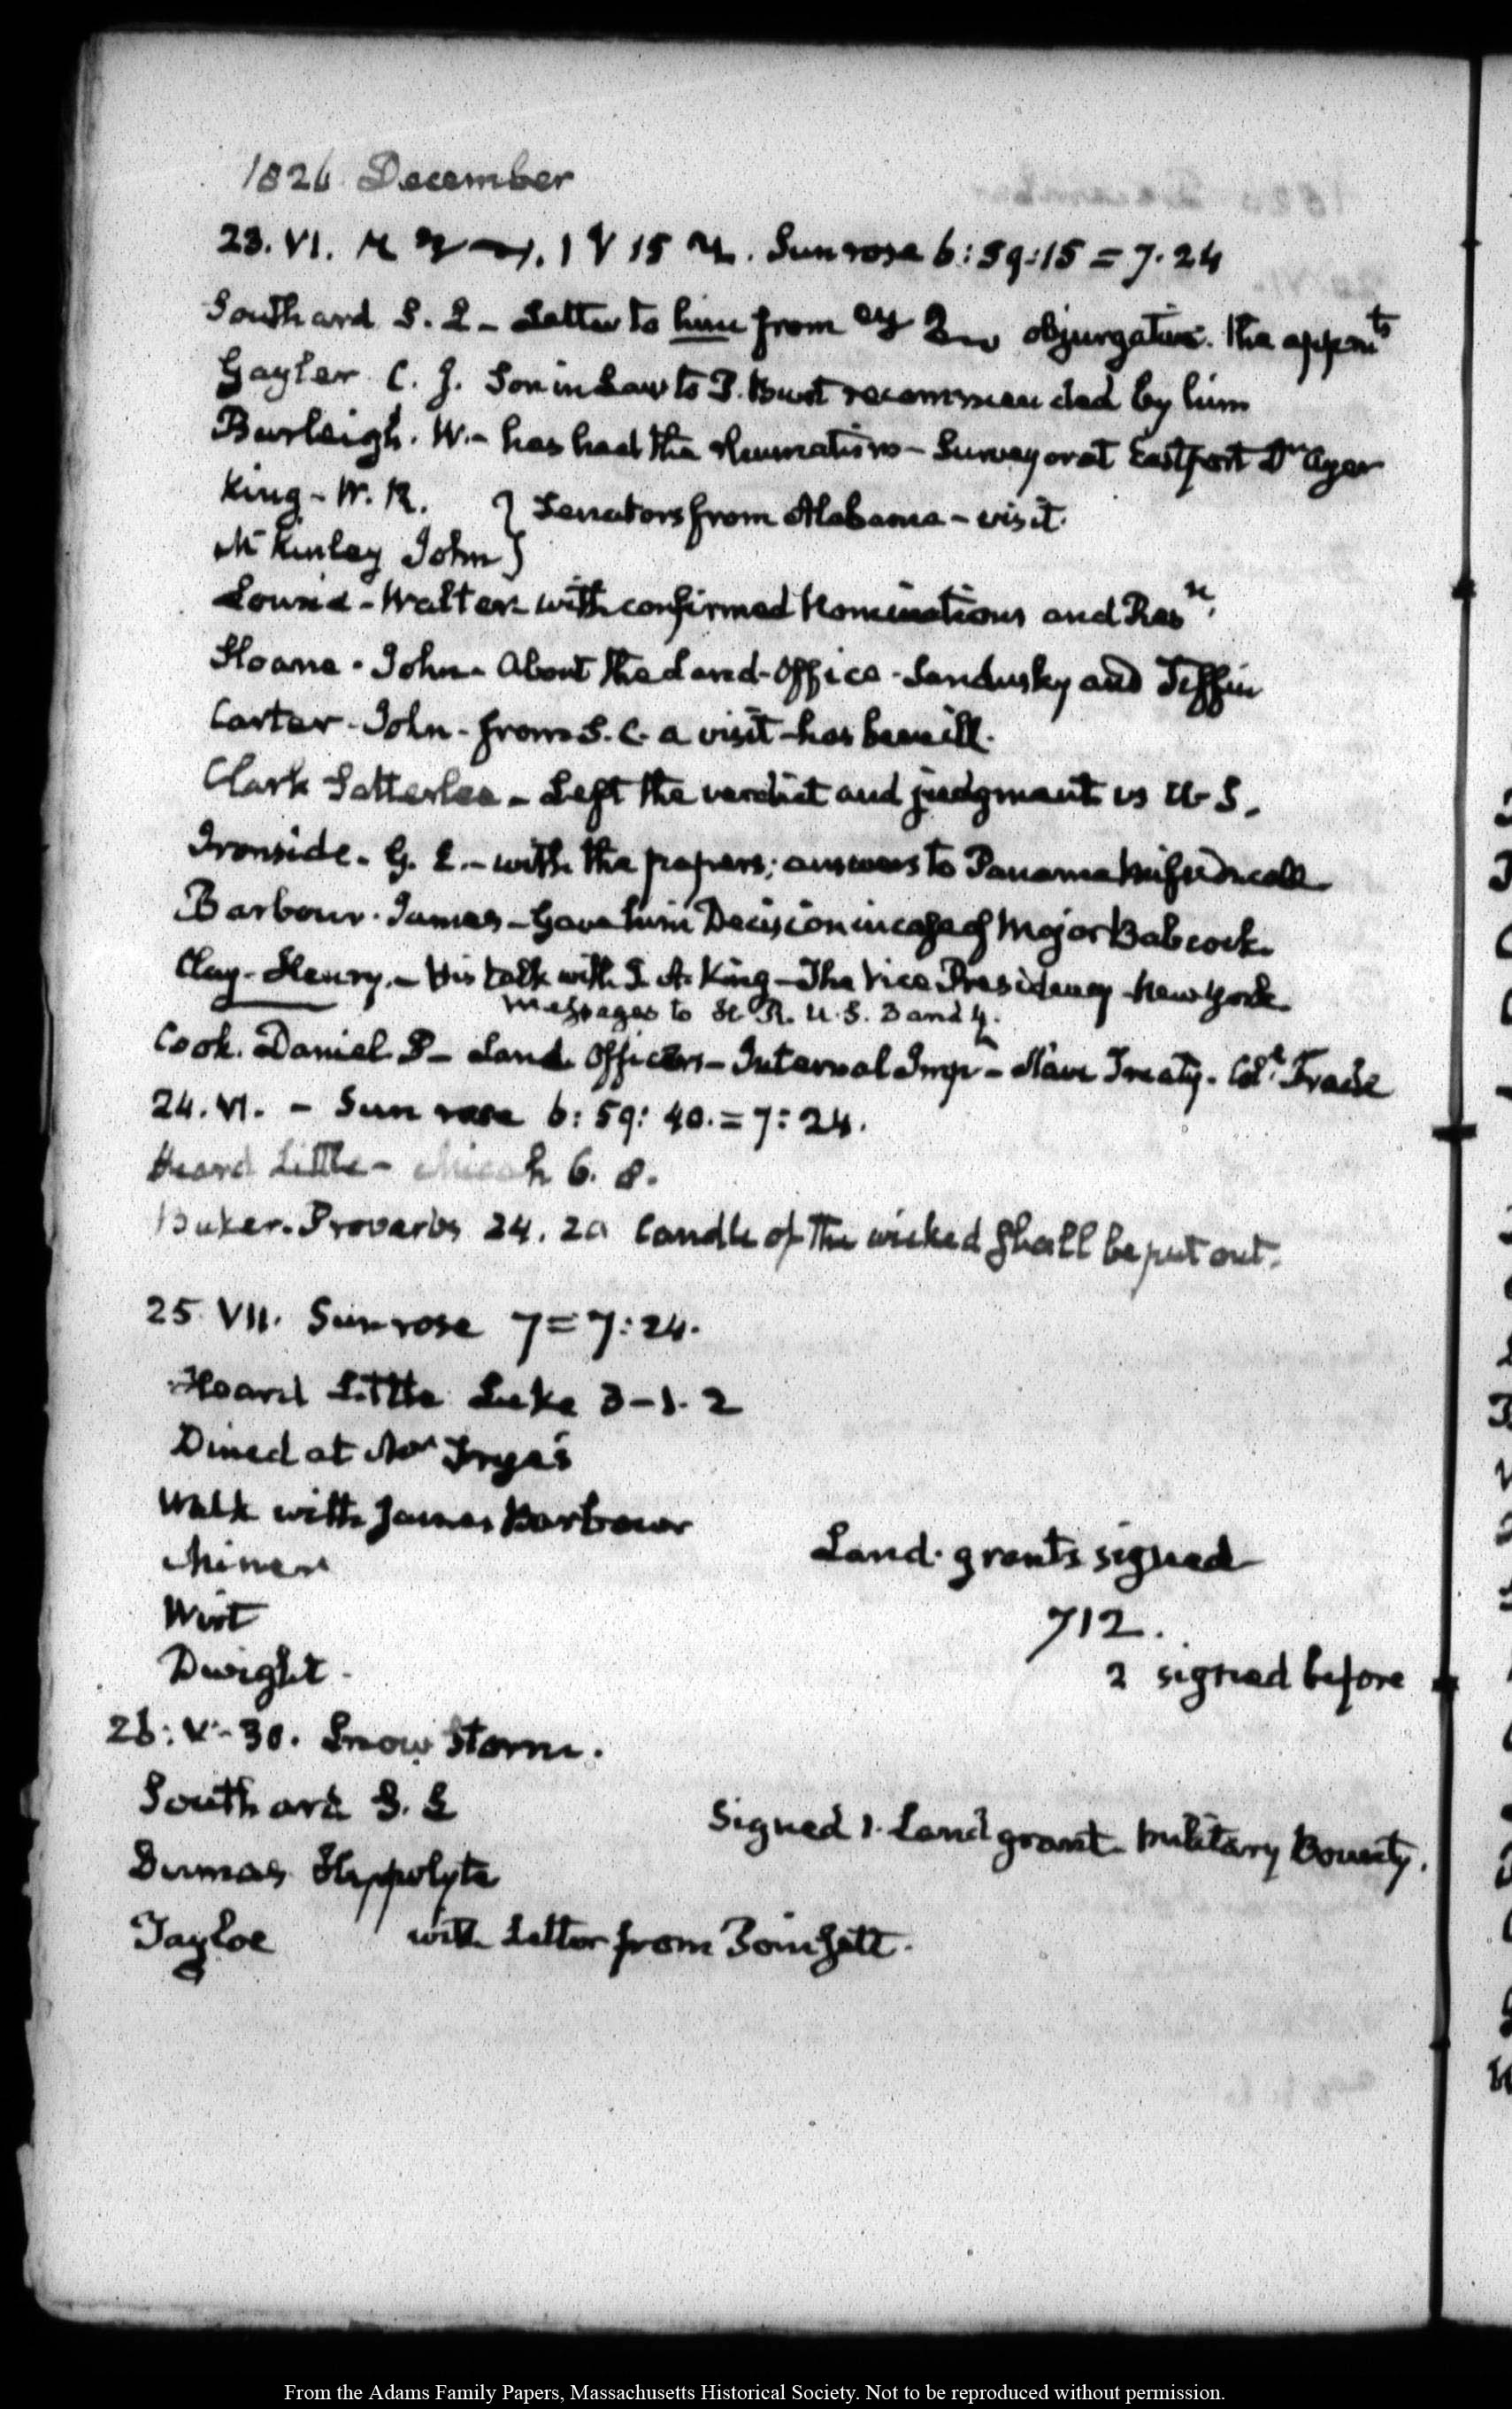 1826 December
23. VI. Sun rose 6:59:15 = 7.24
Southard S. L - Letter to him from objurgative. the appts
Gayler C. J. Son in Law to recommended by him
Burleigh. W. - has had the Rheumatism - Surveyor at Eastport Dr Ayer
King - W. R. } Senators from Alabama - visit
McKinley John }
Lowrie - Walter with confirmed Nominations and Resn.
Sloane - John - About the Land-Office - Sandusky and Tiffin
Carter - John - from S. C. a visit - has been ill.
Clark Satterlee - Left the verdict and judgment vs U. S.
Ironside - G. E. - with the papers; answers to Panama Mission call
Barbour - James - Gave him Decision in case of Major Babcock
Clay - Henry. - His talk with J. A. King - The Vice Presidency - New York
Messages to H. R. U. S. 3 and 4.
Cook. Daniel P - Land Officers - Internal Impt - Slave Treaty. Coll Trade
24. VI. - Sun rose 6: 59: 40. = 7: 24.
Heard Little - Micah 6. 8.
Baker. Proverbs 24. 20 Candle of the wicked shall be put out.
25. VII. Sun rose 7 = 7: 24.
Heard Little Luke 3 - 1. 2
Dined at Mrs Frye's
Walk with James Barbour
Miner
Land grants signed
Wirt
712.
Dwight.
2 signed before
26: V - 30. Snow Storm.
Southard S. L
Signed 1. Land grant Military Bounty.
Dumas Hyppolyte
Tayloe with Letter from Poinsett.
From the Adams Family Papers, Massachusetts Historical Society. Not to be reproduced without permission.